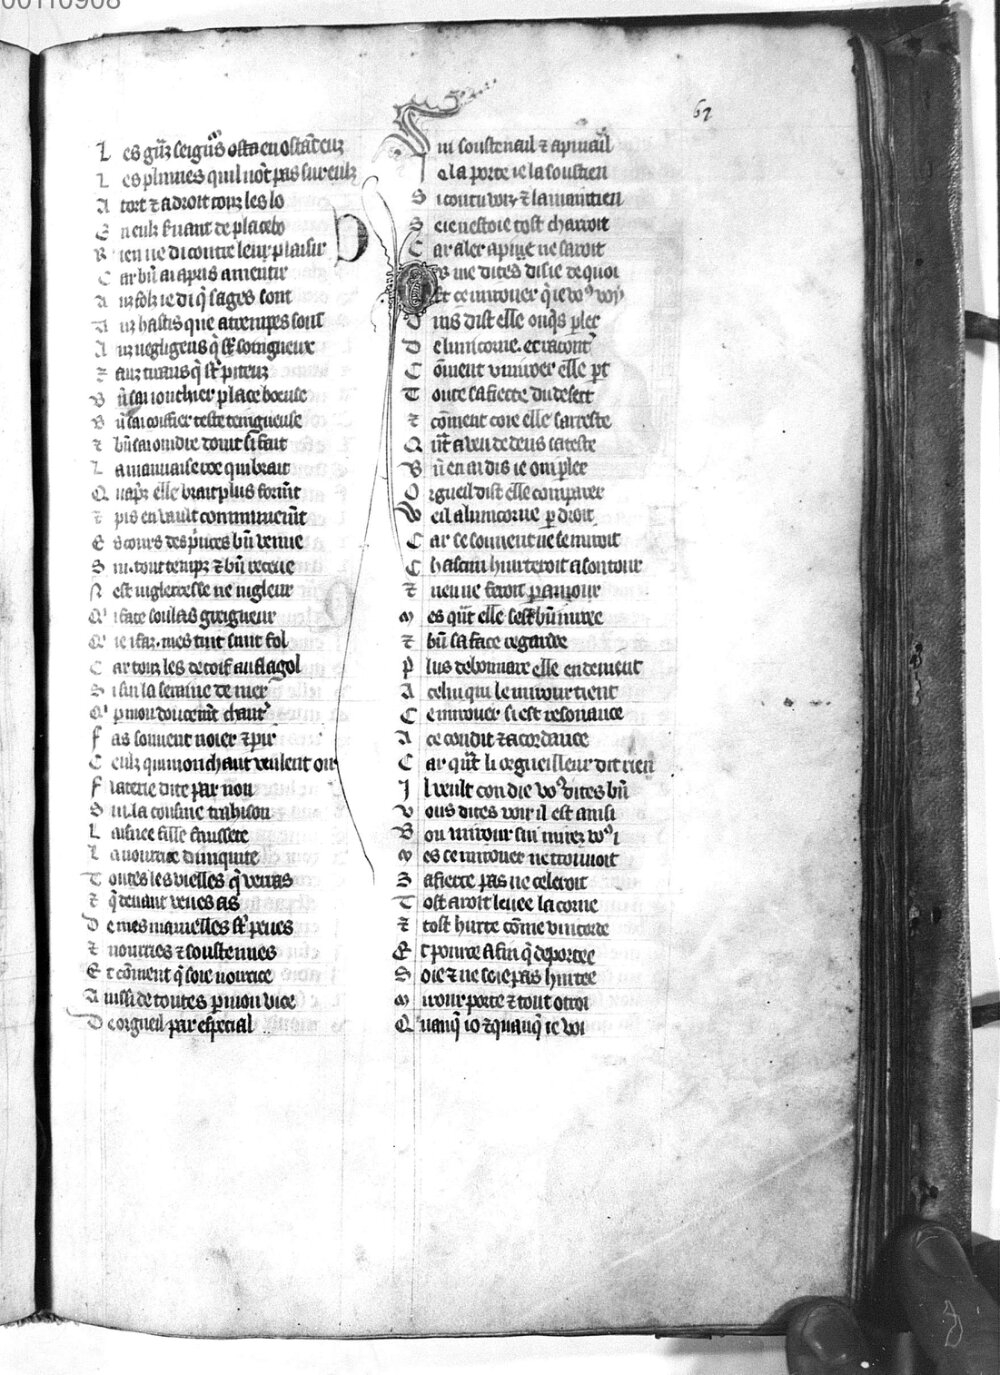 00110908
67
L es gñs seigñs osta en ostãt eulz
L es plumes quil nõt pas sur eulz
A tort ⁊ a droit tous les lo
E n eulz s̃uant de placebo
R ien ne di contre leur plaisir
C ar bñ ai apris a mentir
A us folz ie di q̃ sages sont
A us hastis que atrempes sont
A us negligens q̃ sõt songneux
⁊ aus tirans q̃ sõt piteux
B ñ sai ionchier place boeuse
B ñ sai coiffier teste teingneuse
⁊ bñ sai oindre
L a mauuaise qui brait
Q uapz elle brait plus formt
⁊ pis en vault communemt
E s cours des p̃nces bñ venue
S ui tout temps ⁊ bñ receue
N est iugleresse ne iugleur
Q' i face soulas greigneur
Q' ie fas. mes tuit sunt fol
C ar tous les decoif au flagol
S i sui la seraine de mer
Q' p mon doucemt chant'
F as souuent noier ⁊ pir
C eulz qui mon chant veulent oir
F laterie dite par non
S ui. la cousine trahison
L aisnee fille faussete
L a nourrice diniquite
T outes les vielles q̃ verras
⁊ q̃ deuant veues as
D e mes mamelles sõt peues
⁊ nourries ⁊ soustenues
E t cõment q̃ soie nourrice
A ussi de toutes p mon vice
D e orgueil par especial
S ui soustenail ⁊ apuiail
J e la porte ie la soustien
S i con tu vois ⁊ la maintien
S e ie nestoie tost charroit
C ar aler a pie ne saroit
Or me dites dis ie de quoi
Et ce mirouer q̃ ie vo⁹ voy
O uis dist elle onq̃s pler
D e lunicorne. et racont'
C õment v mirouer elle pt
T oute sa fierte du desert
⁊ cõment coie elle sarreste
Q ñt a veu dedens sa teste
B ñ en ai dis ie oui pler
O rgueil dist elle comparer
V eil a lunicorne p droit
C ar se souuent ne se miroit
C hascun hurteroit a son tour
⁊ ne ne seroit p amour
M es qñt elle sest bñ miree
⁊ bñ sa face regardee
P lus debonnaire elle en deuient
A celui qui le mirour tient
C e mirouer si est resonance
A ce con dit ⁊ acordance
C ar qñt li orgueilleux dit rien
J l veult con die vo⁹ dites bñ
V ous dites voir il est ainsi
B on mirour sui mirez vo⁹ i
M es ce mirouer ne trouuoit
S a fierte pas ne celeroit
T ost aroit leuee la corne
⁊ tost hurte cõme vnicorne
E t pource afin q̃ deportee
S oie ⁊ ne soie pas hurtee
M irour porte ⁊ tout otroi
Q uanq̃ io ⁊ quanq̃ ie voi